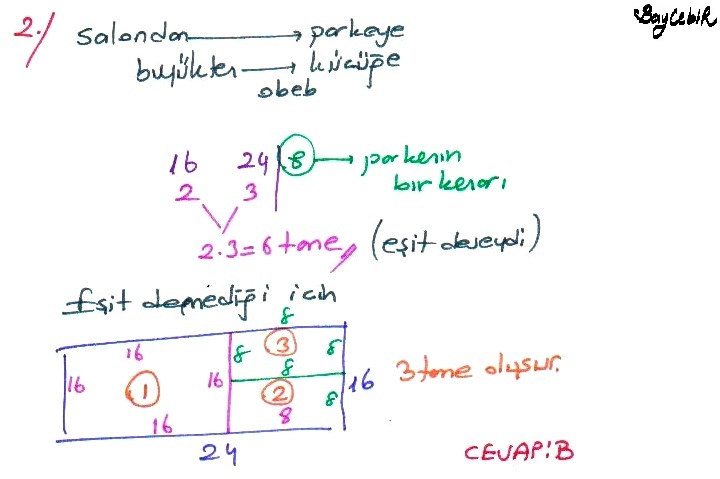 BayCebiR
2./ Salondan → parkeye
büyükten → küçüğe
obeb
16 24 | 8 → parkenin
2 3 bir kenarı
2.3=6 tane, (eşit deseydi)
Eşit demediği için
8
16 8 3 8
8
16 1 16 16 3 tane oluşur.
2 8
16 8
24
CEVAP:B